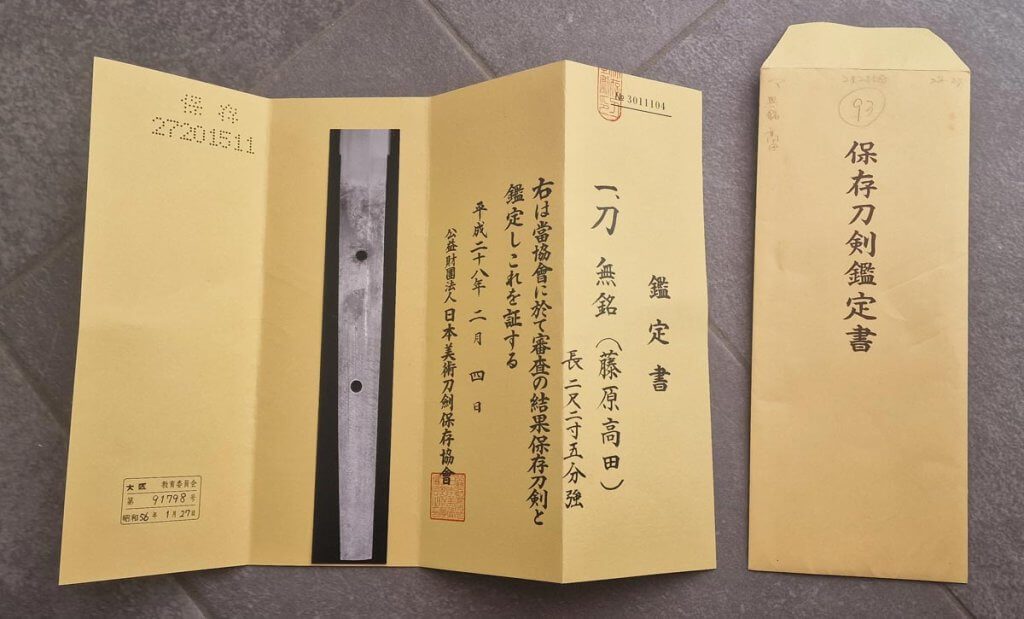 № 3011104
鑑定書
一、刀 無銘（藤原高田）
長 二尺二寸五分強
右は當協會に於て審査の結果保存刀剣と
鑑定しこれを証する
平成二十八年 二月 四日
公益財團法人 日本美術刀劍保存協會
保存
27201511
大阪 教育委員会
第 91798 号
昭和56年 1月27日
93
保存刀剣鑑定書